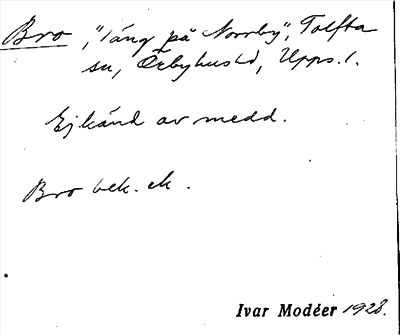 Bro, "äng på Norrby", Tolfta
sn, Örbyhus hd, Upps. l.
Ej känd av medd.
Bro bek. ek.
Ivar Modéer 1928.